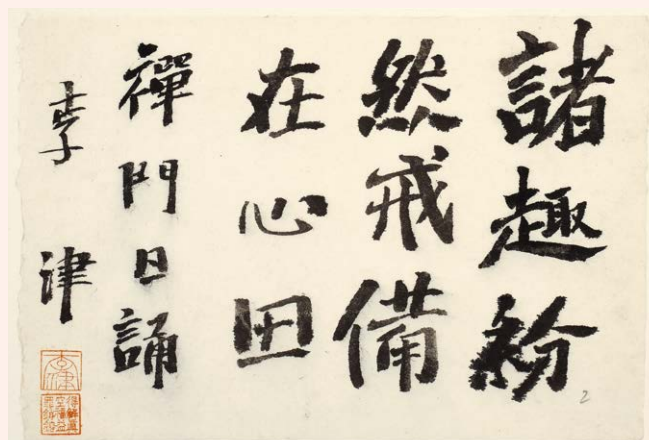 諸趣紛
然戒備
在心田
禪門日誦
李津
2